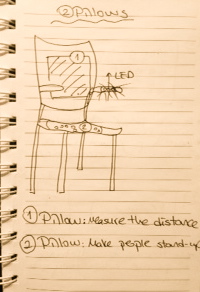 ② Pillows
①
LED
②
① Pillow: Measure the distance
② Pillow: Make people stand-up